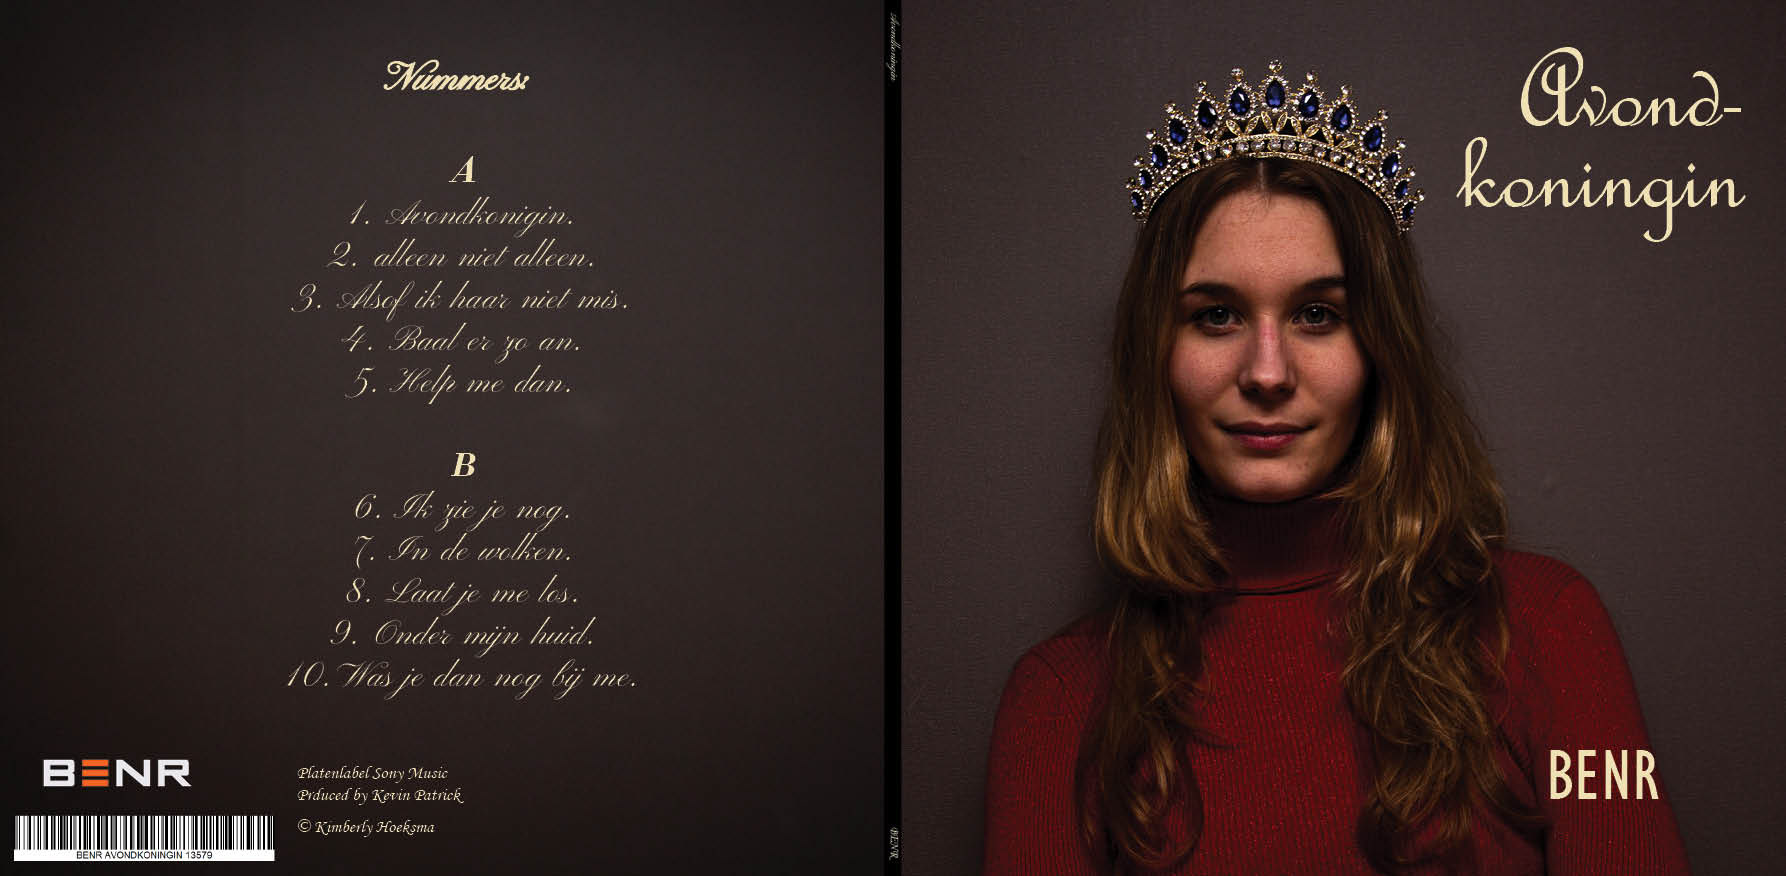 Nummers:
A
1. Avondkonigin.
2. alleen niet alleen.
3. Alsof ik haar niet mis.
4. Baal er zo an.
5. Help me dan.
B
6. Ik zie je nog.
7. In de wolken.
8. Laat je me los.
9. Onder mijn huid.
10. Was je dan nog bij me.
BENR
Platenlabel Sony Music
Prduced by Kevin Patrick
© Kimberly Hoeksma
BENR AVONDKONINGIN 13579
Avondkoningin
BENR
Avond-
koningin
BENR